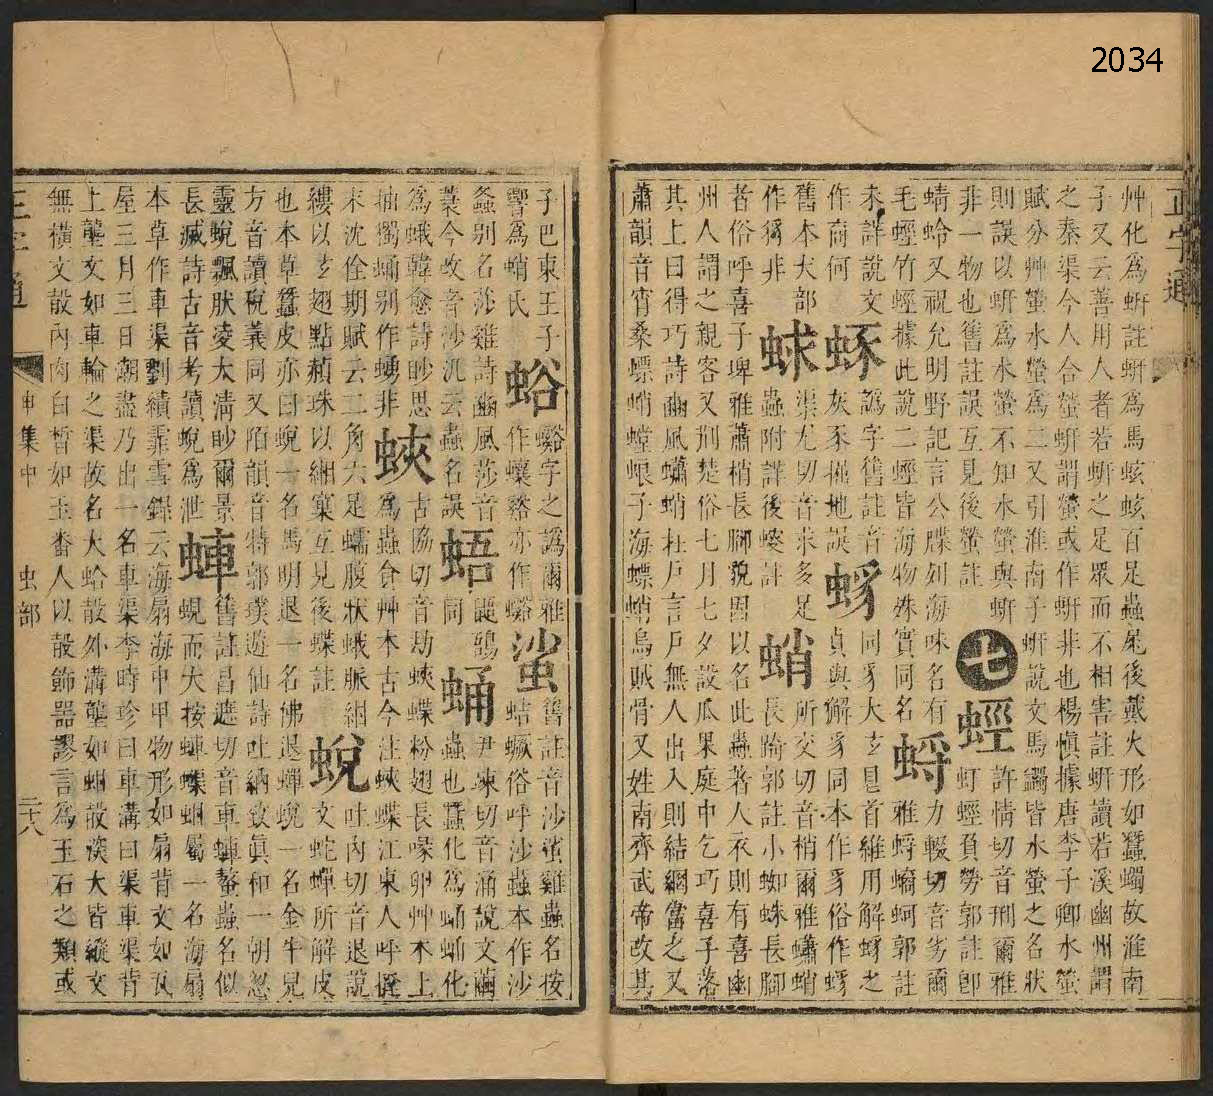 2034
正字通
艸化爲蚈註蚈爲馬蚿蚿百足蟲尾後戴火形如蠶蠋故淮南
子又云善用人者若蚈之足眾而不相害註蚈讀若溪幽州謂
之秦渠今人合螢蚈謂螢或作蚈非也楊慎據唐李子卿水螢
賦分艸螢水螢爲二又引淮南子蚈說文馬蠲皆水螢之名狀
則誤以蚈爲水螢不知水螢與蚈
非一物也舊註誤互見後螢註 七 蛵 許情切音刑爾雅虰蛵負勞郭註卽
蜻蛉又祝允明野記言公牒列海味名有
毛蛵竹蛵據此說二蛵皆海物殊實同名 蛶 力輟切音劣爾雅蛶螪蚵郭註
未詳說文
作商何 𧋊 譌字舊註音灰豕掘地誤 𧋍 同豸大玄㫷首維用解𧋍之貞與解豸同本作豸俗作𧋍
舊本犬部
作㺫非 蛷 渠尤切音求多足蟲附詳後螋註 蛸 所交切音梢爾雅蠨蛸長踦郭註小蜘蛛長腳
者俗呼喜子埤雅蕭梢長腳貌因以名此蟲著人衣則有喜幽
州人謂之親客又荆楚俗七月七夕設瓜果庭中乞巧喜子落
其上曰得巧詩豳風蠨蛸在戶言戶無人出入則結網當之又
蕭韻音宵桑螵蛸螳蜋子海螵蛸烏賊骨又姓南齊武帝改其
子巴東王子
響爲蛸氏 䗃 谿字之譌爾雅作蠰谿亦作螇 貨 舊註音沙蛩雞蟲名按蛣蟩俗呼沙蟲本作沙
螽别名莎雞詩豳風莎音
義今改音沙汎云蟲名誤 䗁 同鼯鵐 蛹 尹竦切音涌說文繭蟲也蠶化爲蛹蛹化
爲蛾韓愈詩眇思
抽獨蛹别作蛹非 蛺 古協切音劫蛺蝶粉翅長喙卵艸木上爲蟲食艸木古今注蛺蝶江東人呼撻
末沈佺期賦云二角六足蠕腹狀蛾脈細
縷以玄翅點楨珠以絪窠互見後蝶註 蛻 吐內切音退說文蛇蟬所解皮
也本草蠶皮亦曰蛻一名馬明退一名佛退蟬蛻一名金牛兒
方音讀稅義同又陌韻音特郭璞遊仙詩吐納致眞和一朝忽
靈蛻飄肰凌太清眇爾景
長滅詩古音考讀蛻爲泄 蛼 舊註昌遮切音車蛼螯蟲名似蜆而大按蛼蜾蛔屬一名海扇
本草作車渠劉績霏雪錄云海扇海中甲物形如扇背文如瓦
屋三月三日朝盡乃出一名車渠李時珍曰車溝曰渠車渠背
上壟文如車輪之渠故名大蛤殻外溝壟如蚶殻溪大皆縱文
無橫文殻內肉白皙如玉畨人以殻飾器謬言爲玉石之類或
正字通 申集中 虫部 二十八